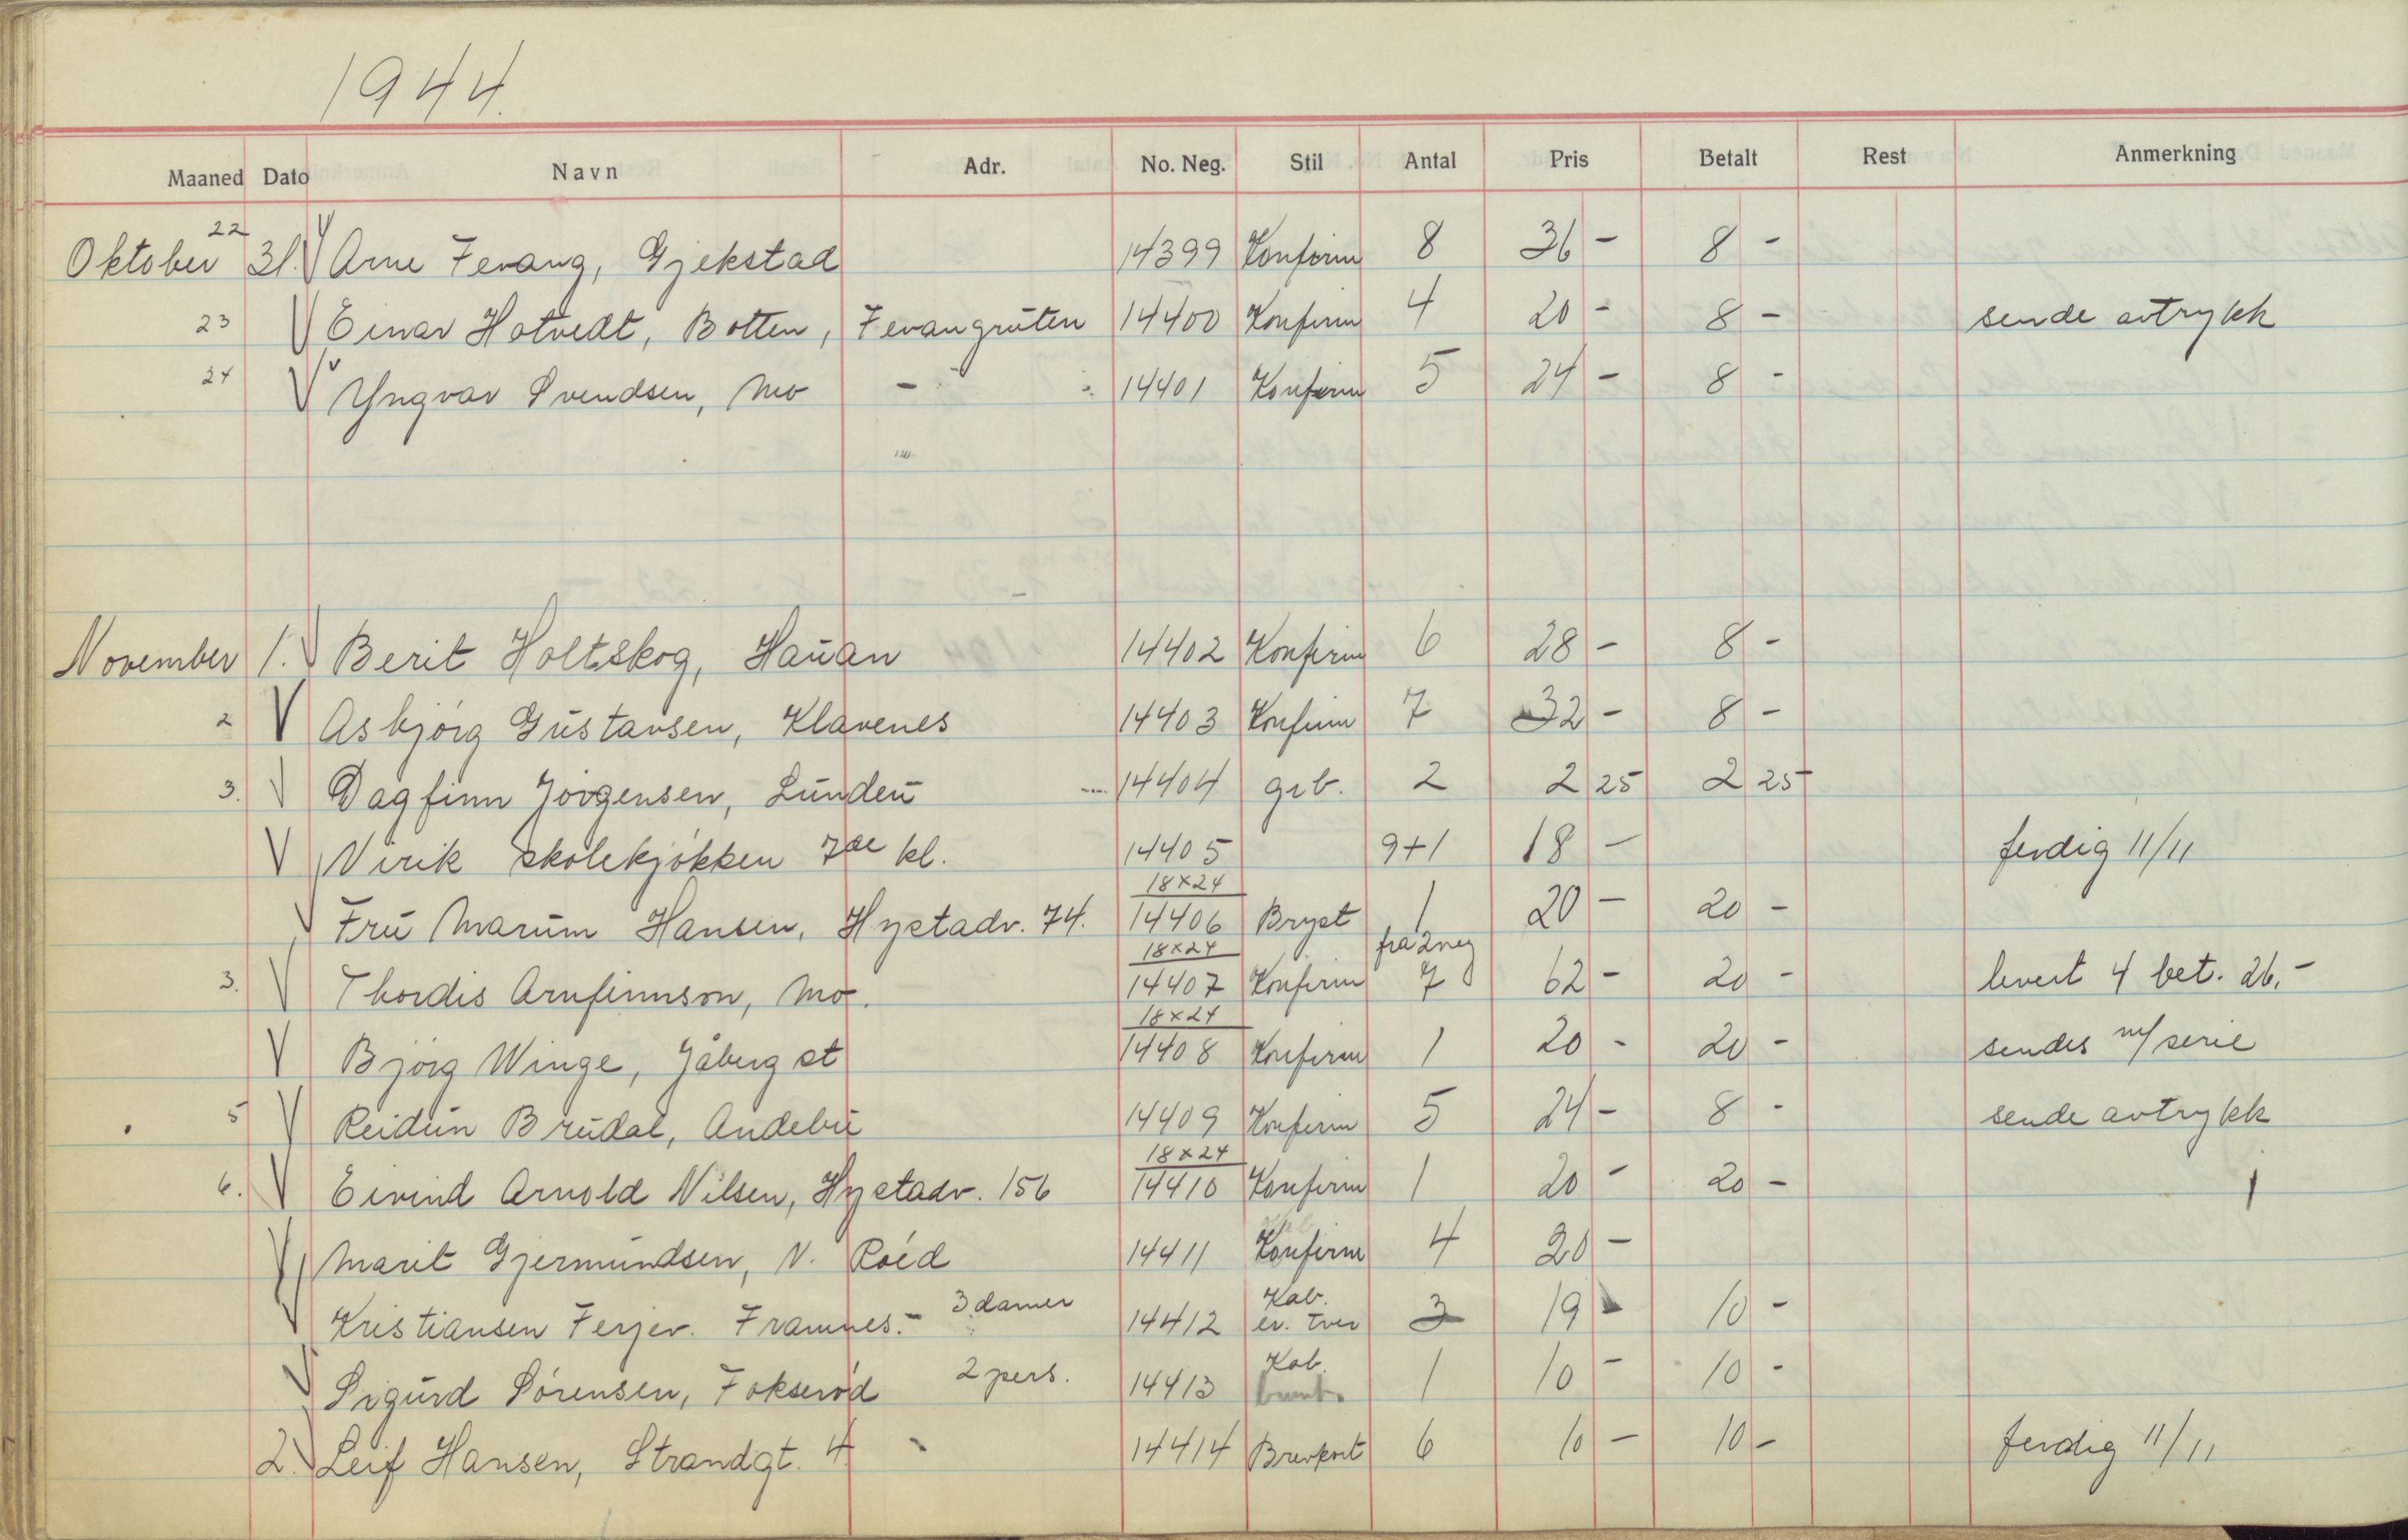 1944.
Maaned Dato Navn Adr. No. Neg. Stil Antal Pris Betalt Rest Anmerkning
22
Oktober 31. Arne Fevang, Gjekstad 14399 Konfirm 8 36 - 8 -
23 Einar Hotvedt, Botten, Fevangruten 14400 Konfirm 4 20 - 8 - sende avtrykk
24 Yngvar Svendsen, Mo - 14401 Konfirm 5 24 - 8 -
November 1. Berit Holtskog, Hauan 14402 Konfirm 6 28 - 8 -
2 Asbjørg Gustavsen, Klavenes 14403 Konfirm 7 32 - 8 -
3. Dagfinn Jörgensen, Lunden 14404 grb. 2 2 25 2 25
Virik skolekjøkken 7de kl. 14405 9+1 18 - ferdig 11/11
18x24
Fru Marum Hansen, Hystadv. 74. 14406 Bryst 1 20 - 20 -
18x24 fra 2 neg
3. Thordis Arnfinnson, Mo. 14407 Konfirm 7 62 - 20 - levert 4 bet. 26.-
18x24
Bjørg Winge, Jåberg st 14408 Konfirm 1 20 - 20 - sendes m/serie
5 Reidun Brudal, Andebu 14409 Konfirm 5 24 - 8 - sende avtrykk
18x24
6. Eivind Arnold Nilsen, Hystadv. 156 14410 Konfirm 1 20 - 20 -
Marit Gjermundsen, N. Roéd 14411 Konfirm 4 20 -
3 damer Kab.
Kristiansen Ferjev. Framnes.- 14412 ev. tver 3 19 - 10 -
2 pers. Kab.
Sigurd Sörensen, Fokseröd 14413 1 10 - 10 -
2. Leif Hansen, Strandgt. 4 14414 Brevkort 6 10 - 10 - ferdig 11/11